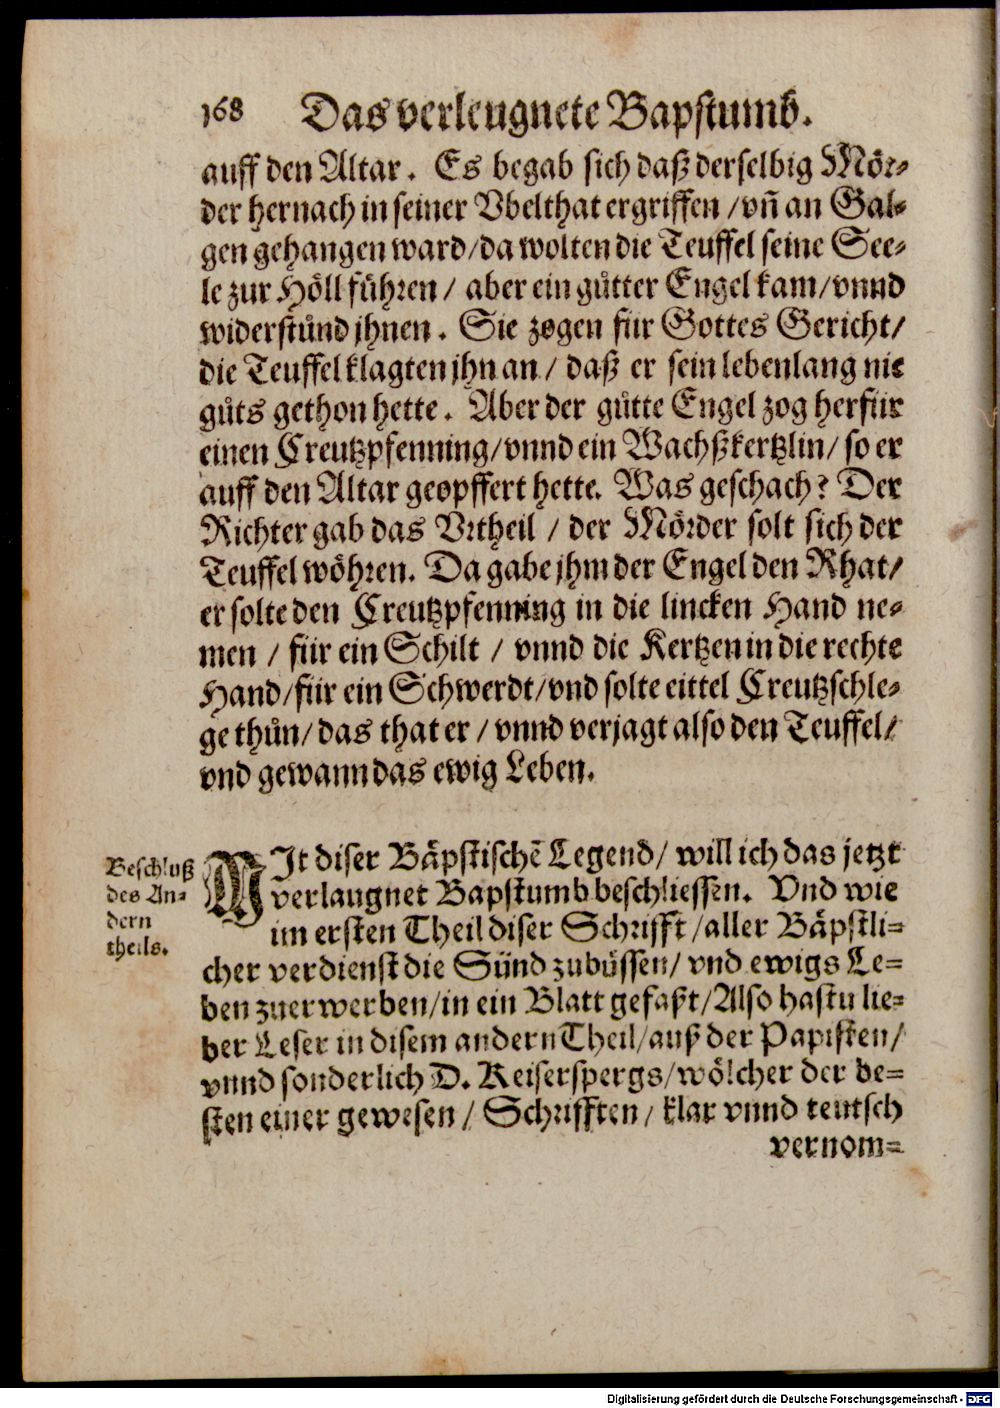 168 Das verleugnete Bapstumb.
auff den Altar. Es begab sich daß derselbig Mör-
der hernach in seiner Vbelthat ergriffen / vñ an Gal-
gen gehangen ward / da wolten die Teuffel seine See-
le zur Höll führen / aber ein gůtter Engel kam / vnnd
widerstůnd jhnen. Sie zogen für Gottes Gericht /
die Teuffel klagten jhn an / daß er sein lebenlang nie
gůts gethon hette. Aber der gůtte Engel zog herfür
einen Creutzpfenning / vnnd ein Wachßkertzlin / so er
auff den Altar geopffert hette. Was geschach? Der
Richter gab das Vrtheil / der Mörder solt sich der
Teuffel wöhren. Da gabe jhm der Engel den Rhat /
er solte den Creutzpfenning in die lincken Hand ne-
men / für ein Schilt / vnnd die Kertzen in die rechte
Hand / für ein Schwerdt / vnd solte eittel Creutzschle-
ge thůn / das that er / vnnd verjagt also den Teuffel /
vnd gewann das ewig Leben.
Beschluß
des An-
dern
theils.
MIt diser Bäpstischē Legend / will ich das jetzt
verlaugnet Bapstumb beschliessen. Vnd wie
im ersten Theil diser Schrifft / aller Bäpstli-
cher verdienst die Sünd zubüssen / vnd ewigs Le-
ben zuerwerben / in ein Blatt gefaßt / Also hastu lie-
ber Leser in disem andern Theil / auß der Papisten /
vnnd sonderlich D. Keiserspergs / wölcher der be-
sten einer gewesen / Schrifften / klar vnnd teutsch
vernom-
Digitalisierung gefördert durch die Deutsche Forschungsgemeinschaft - DFG